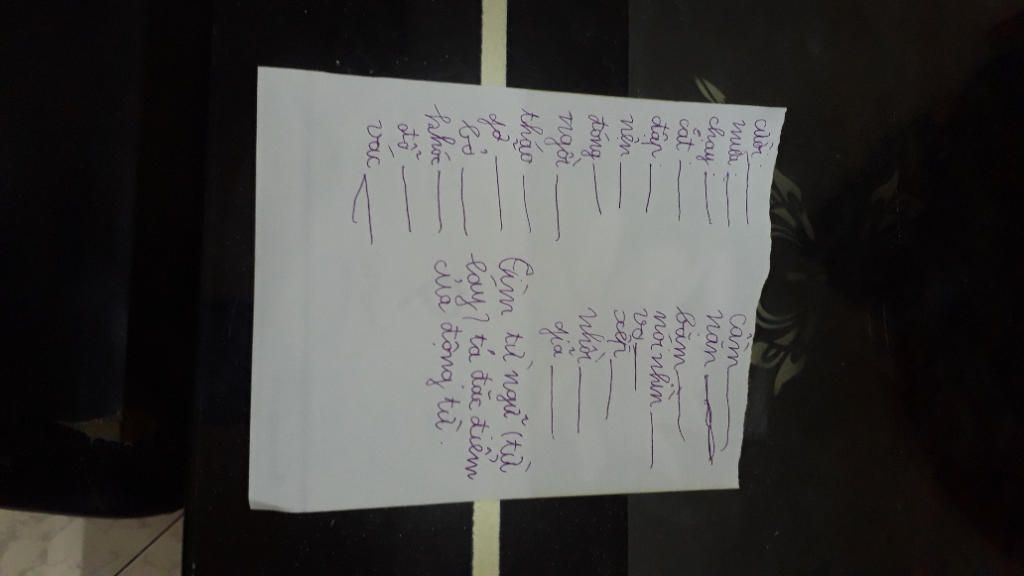 cười:
múa:
chạy:
cắt
đập:
nằm
đóng
ngồi
tháo
gỡ
bỏ
khóc
đổ
vác
cầm
nắn
băm
nơi nhìn
vo
xếp
nhồi
giã
(Tìm từ ngữ (từ
láy) tả đặc điểm
của động từ.